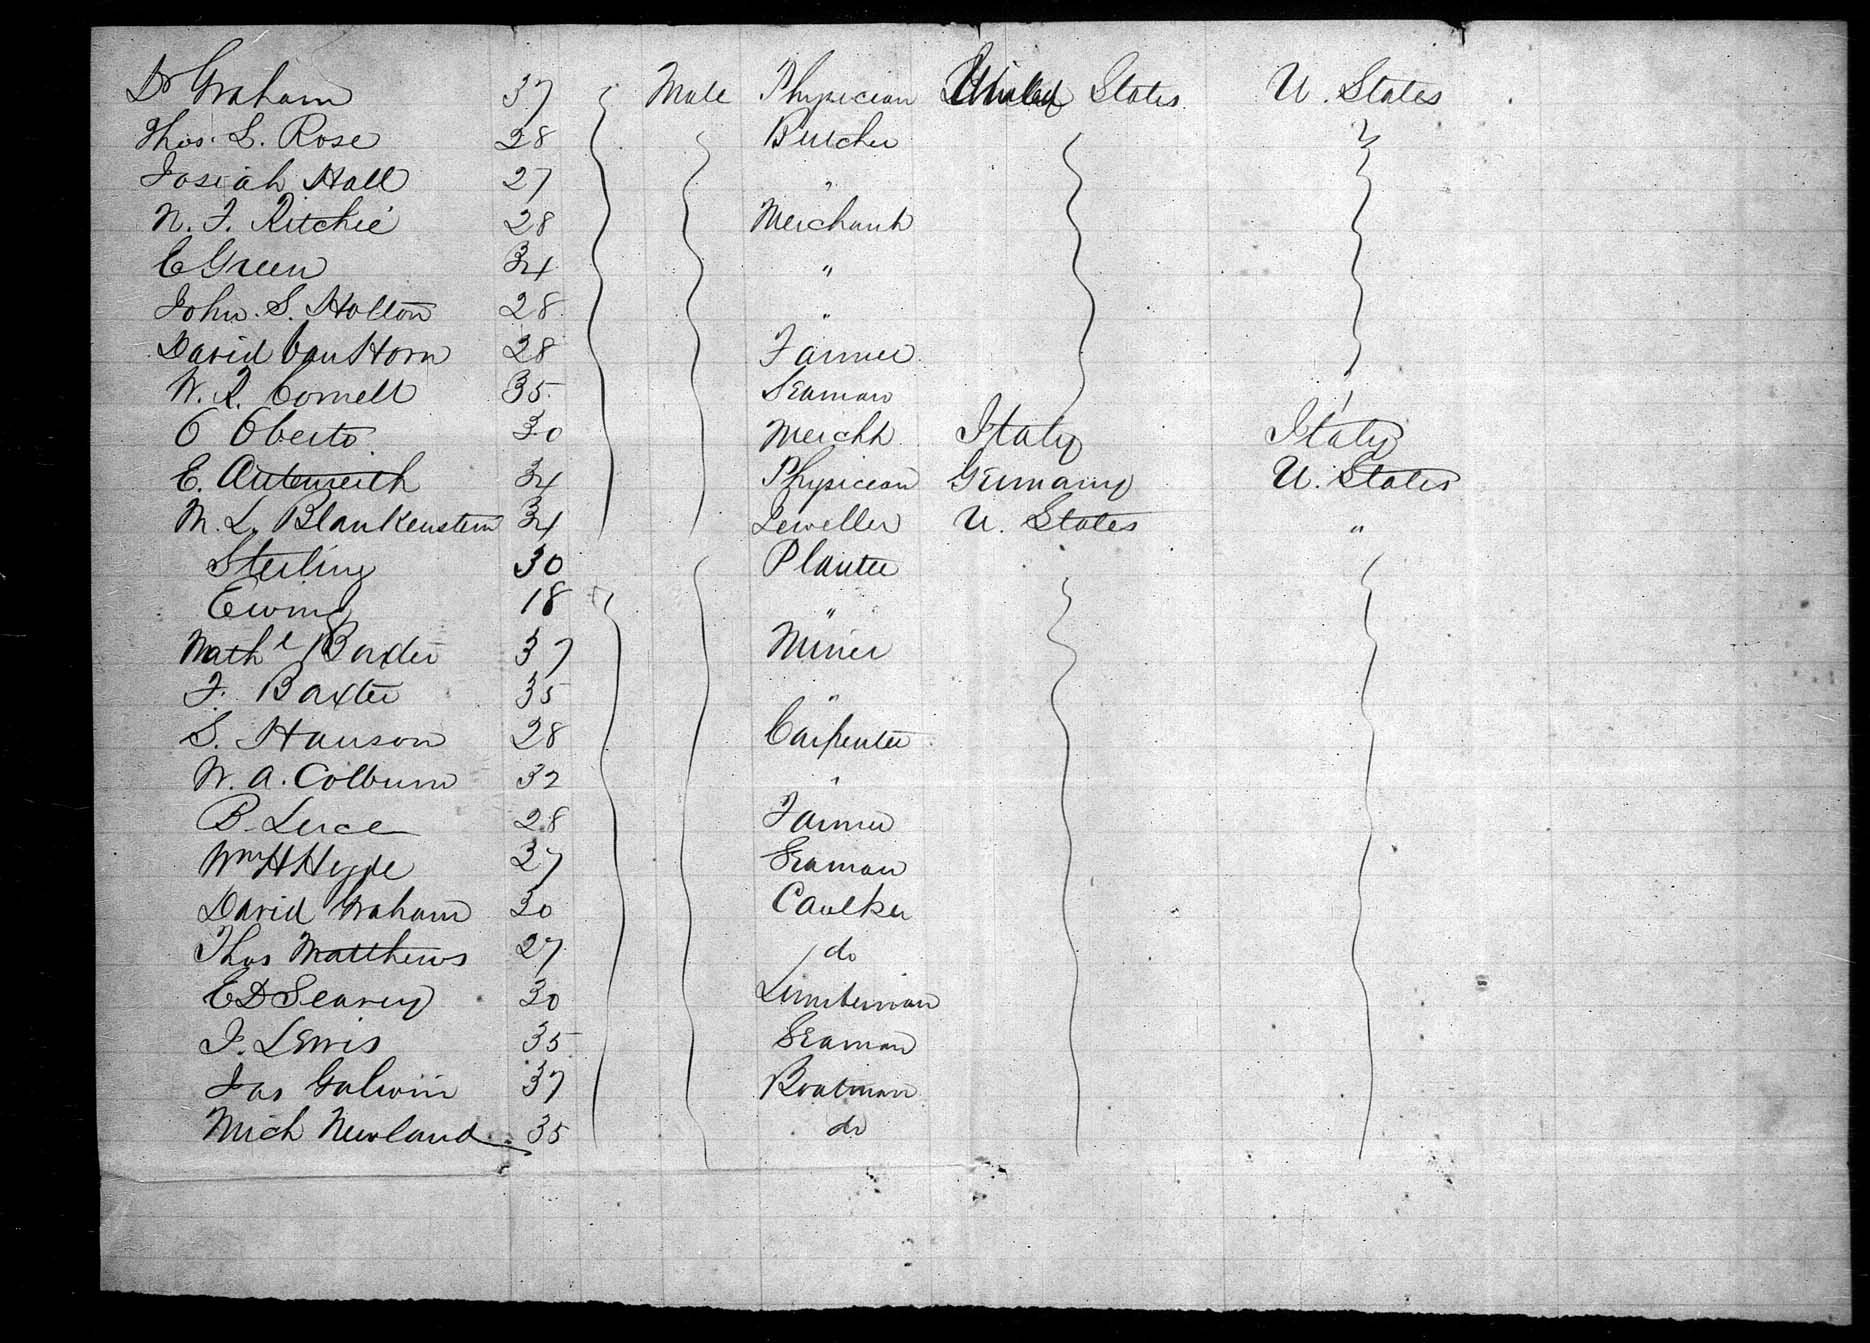 Dr Graham 37 Male Physician United States U. States
Thos. S. Rose 28 Butcher
Josiah Hall 27 "
N. F. Ritchie 28 Merchant
E Green 34 "
John. S. Holton 28 "
David Van Horn 28 Farmer
W. R. Cornell 35 Seaman
O Oberto 30 Mercht Italy Italy
E. Autenreith 34 Physician Germany U. States
M. L. Blankenstein 34 Jeweller U. States "
Sterling 30 Planter
Ewing 18 "
Nathl Baxter 37 Miner
F. Baxter 35 "
S. Hanson 28 Carpenter
W. A. Colburn 32 "
B. Luce 28 Farmer
Wm H Hyde 27 Seaman
David Graham 30 Caulker
Thos Matthews 27 do
E D Searey 30 Lumberman
J. Lewis 35 Seaman
Jas Galvin 37 Boatman
Mich Newland 35 do